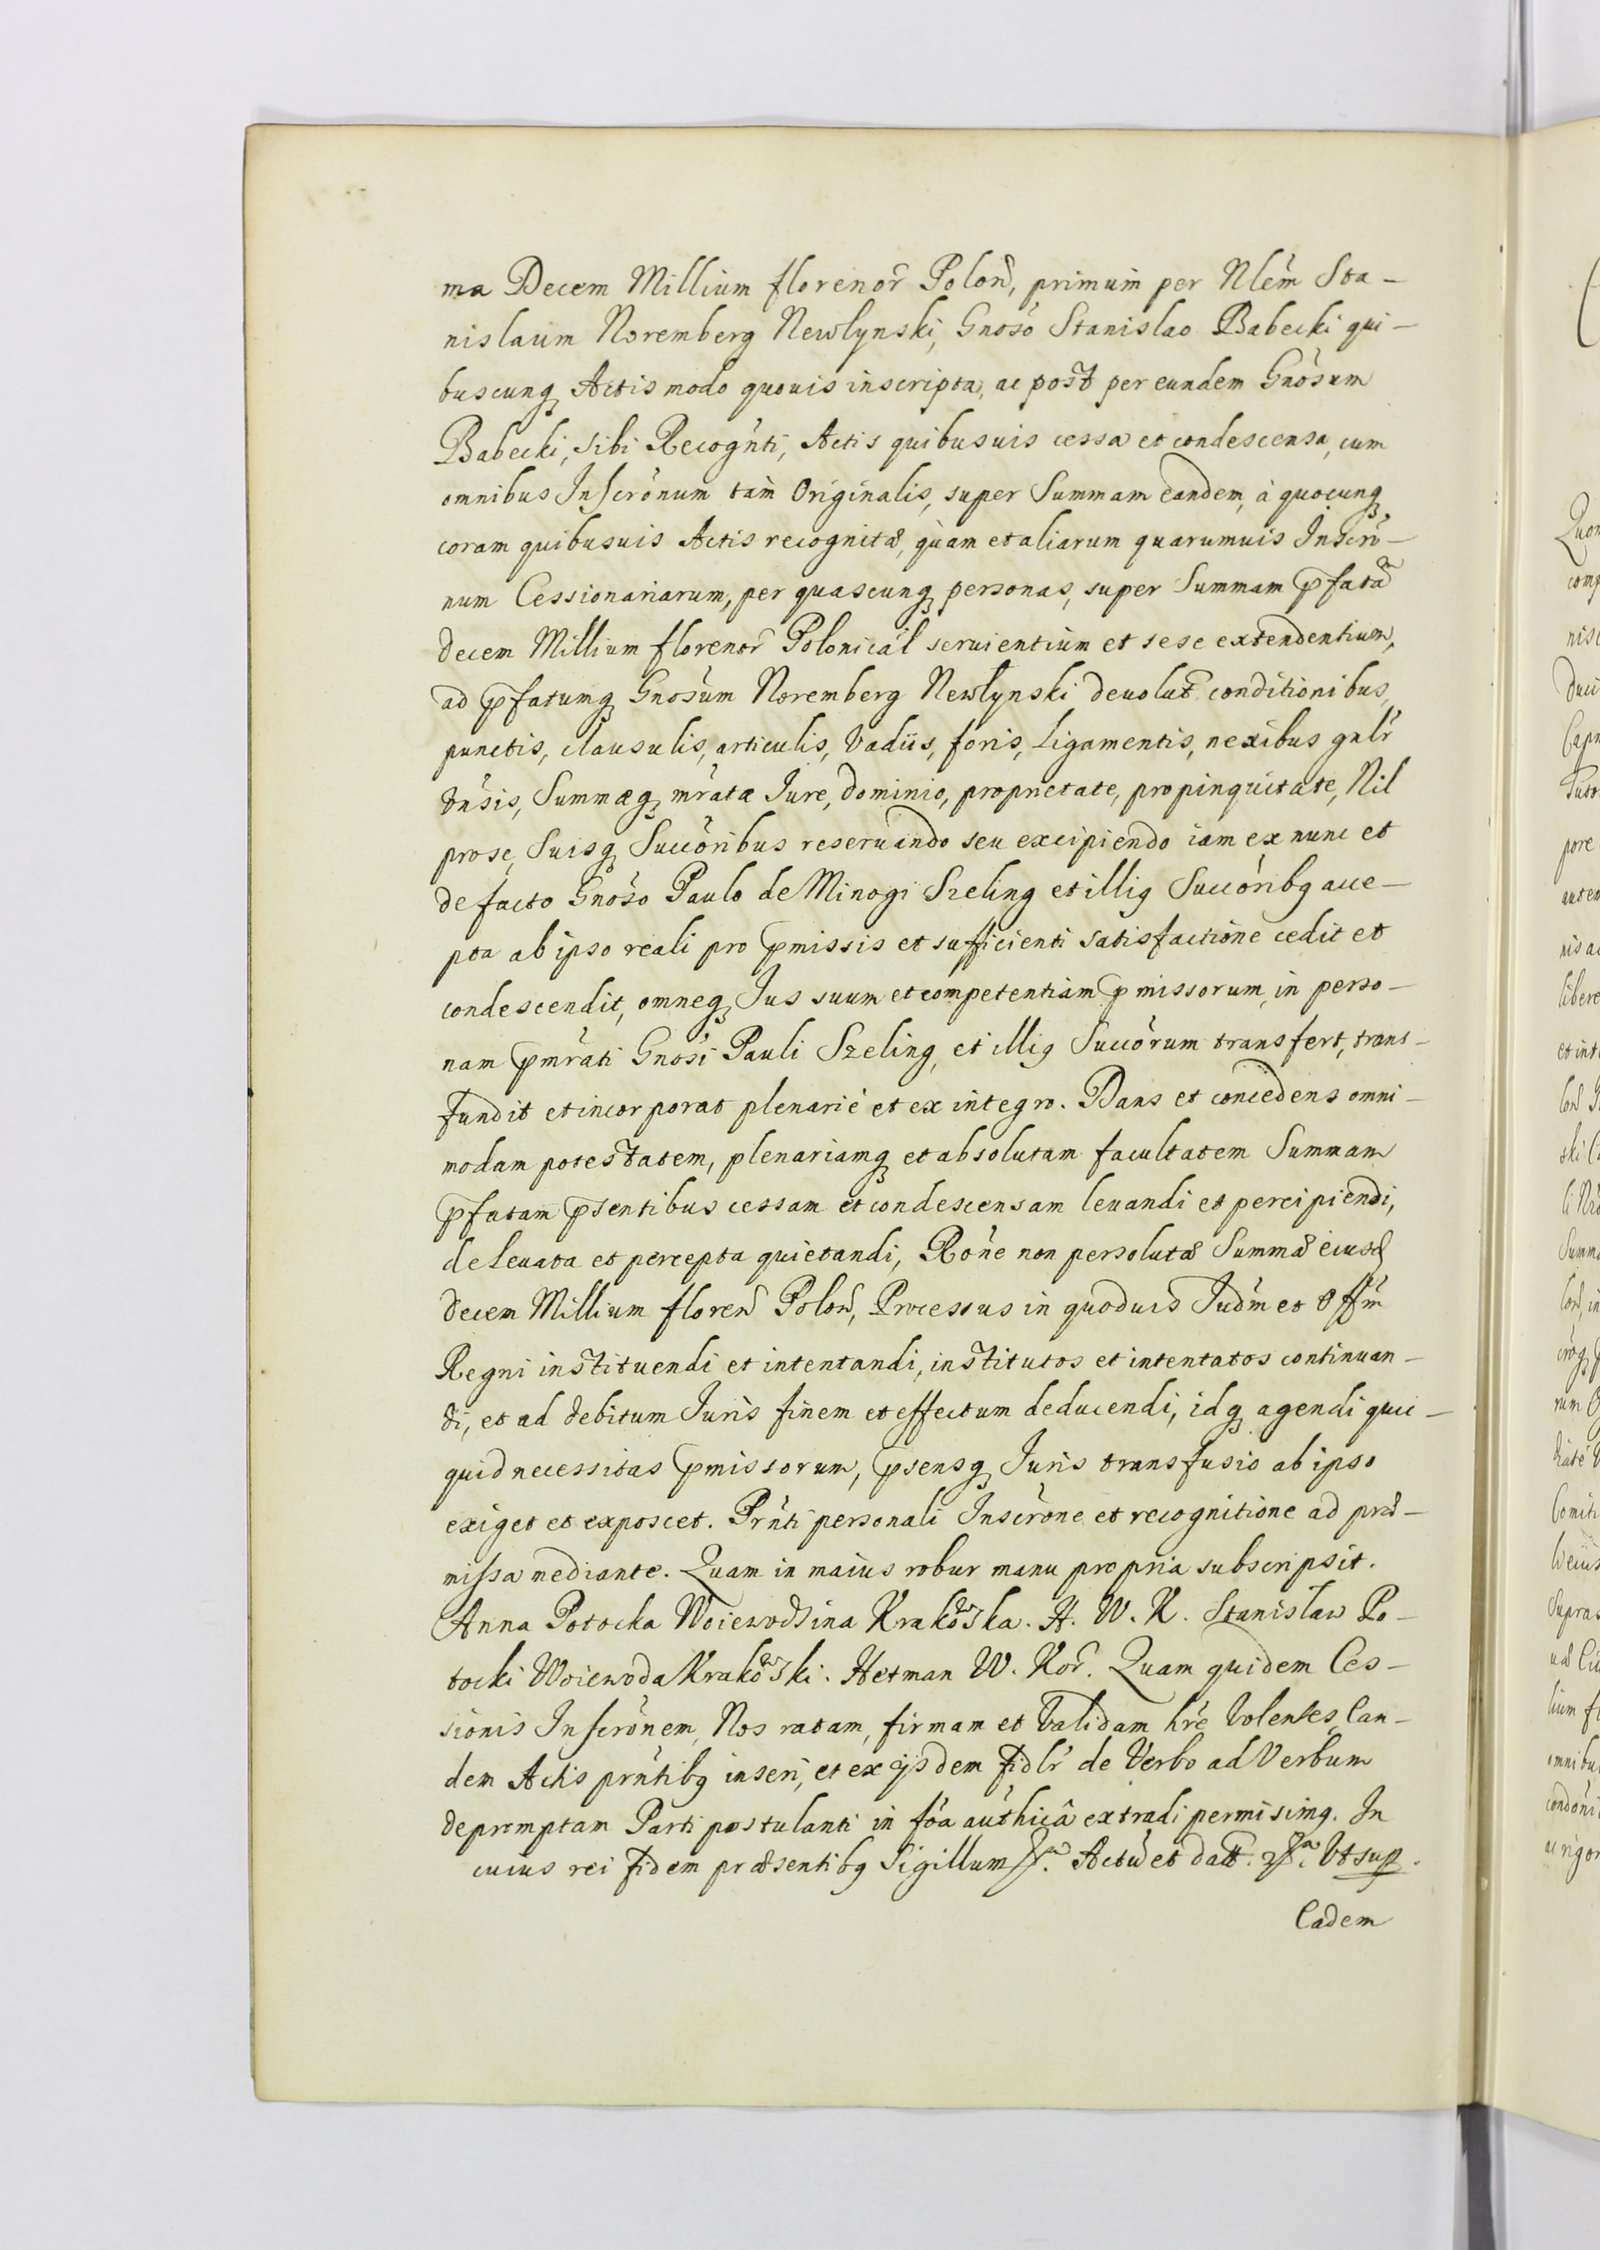 ma Decem Millium florenor Polon, primum per Nlem Sta-
nislaum Noremberg Newlynski, Gnoso Stanislao Babecki qui-
buscunq Actis modo quouis inscripta, ac post per eundem Gnosum
Babecki, sibi Recognti, Actis quibusuis cessa et condescensa, cum
omnibus Inscronum tam Originalis, super Summam eandem, à quocunq
coram quibusuis Actis recognitæ, quam et aliarum quarumuis Inscro-
num Cessionariarum, per quascunq personas, super Summam pfata
decem Millium florenor Polonical seruientium et sese extendentium,
ad pfatumq Gnosum Noremberg Newlynski deuolut conditionibus,
punctis, clausulis, articulis, Vadiis, foris, Ligamentis, nexibus gnlr
Vnsis, Summæq mratæ Iure, dominio, proprietate, propinquitate, Nil
pro se, Suisq Succoribus reseruando seu excipiendo iam ex nunc et
de facto Gnoso Paulo de Minogi Szeling et illig Succoribq acce-
pta ab ipso reali pro pmissis et sufficienti satisfactione cedit et
condescendit, omneq Jus suum et competentiam pmissorum, in perso-
nam pmrati Gnosi Pauli Szeling, et illig Succorum transfert, trans-
fundit et incorporat plenarié et ex integro. Dans et concedens omni-
modam potestatem, plenariamq et absolutam facultatem Summam
pfatam psentibus cessam et condescensam leuandi et percipiendi,
de leuata et percepta quietandi, Rone non persolutæ Summæ eiusd
decem Millium floren Polon, Processus in quoduis Judm et Offm
Regni instituendi et intentandi, institutos et intentatos continuan-
di, et ad debitum Juris finem et effectum deducendi, idq agendi quic-
quid necessitas pmissorum, psensq Juris transfusio ab ipso
exiget et exposcet. Prnti personali Inscrone et recognitione ad præ-
missa mediante. Quam in maius robur manu propria subscripsit.
Anna Potocka Woiewodzina Krakowska. H. W. K. Stanislaw Po-
tocki Woiewoda Krakowski. Hetman W. Kor. Quam quidem Ces-
sionis Inscronem, Nos ratam, firmam et Validam hre Volentes, Ean-
dem Actis prntibq inseri, et ex ijsdem fidlr de Verbo ad Verbum
depromptam Parti postulanti in foa authicâ extradi permisimq. In
cuius rei fidem præsentibq Sigillum Actu et datt. Vt sup.
Eadem